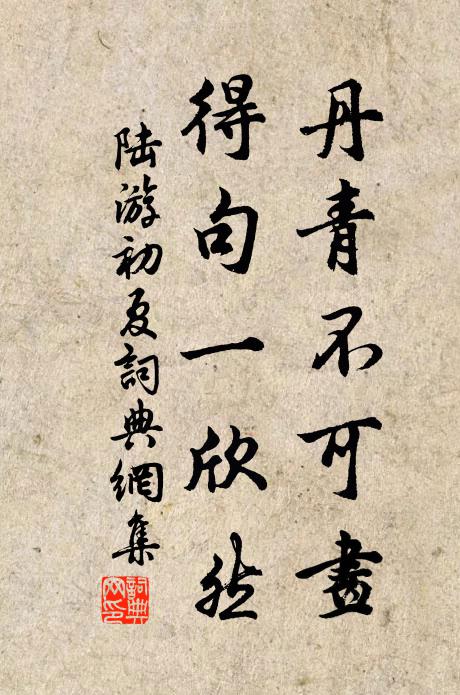 丹青不可畫
得句一欣然
陸游初夏詞典網集
詞典网印